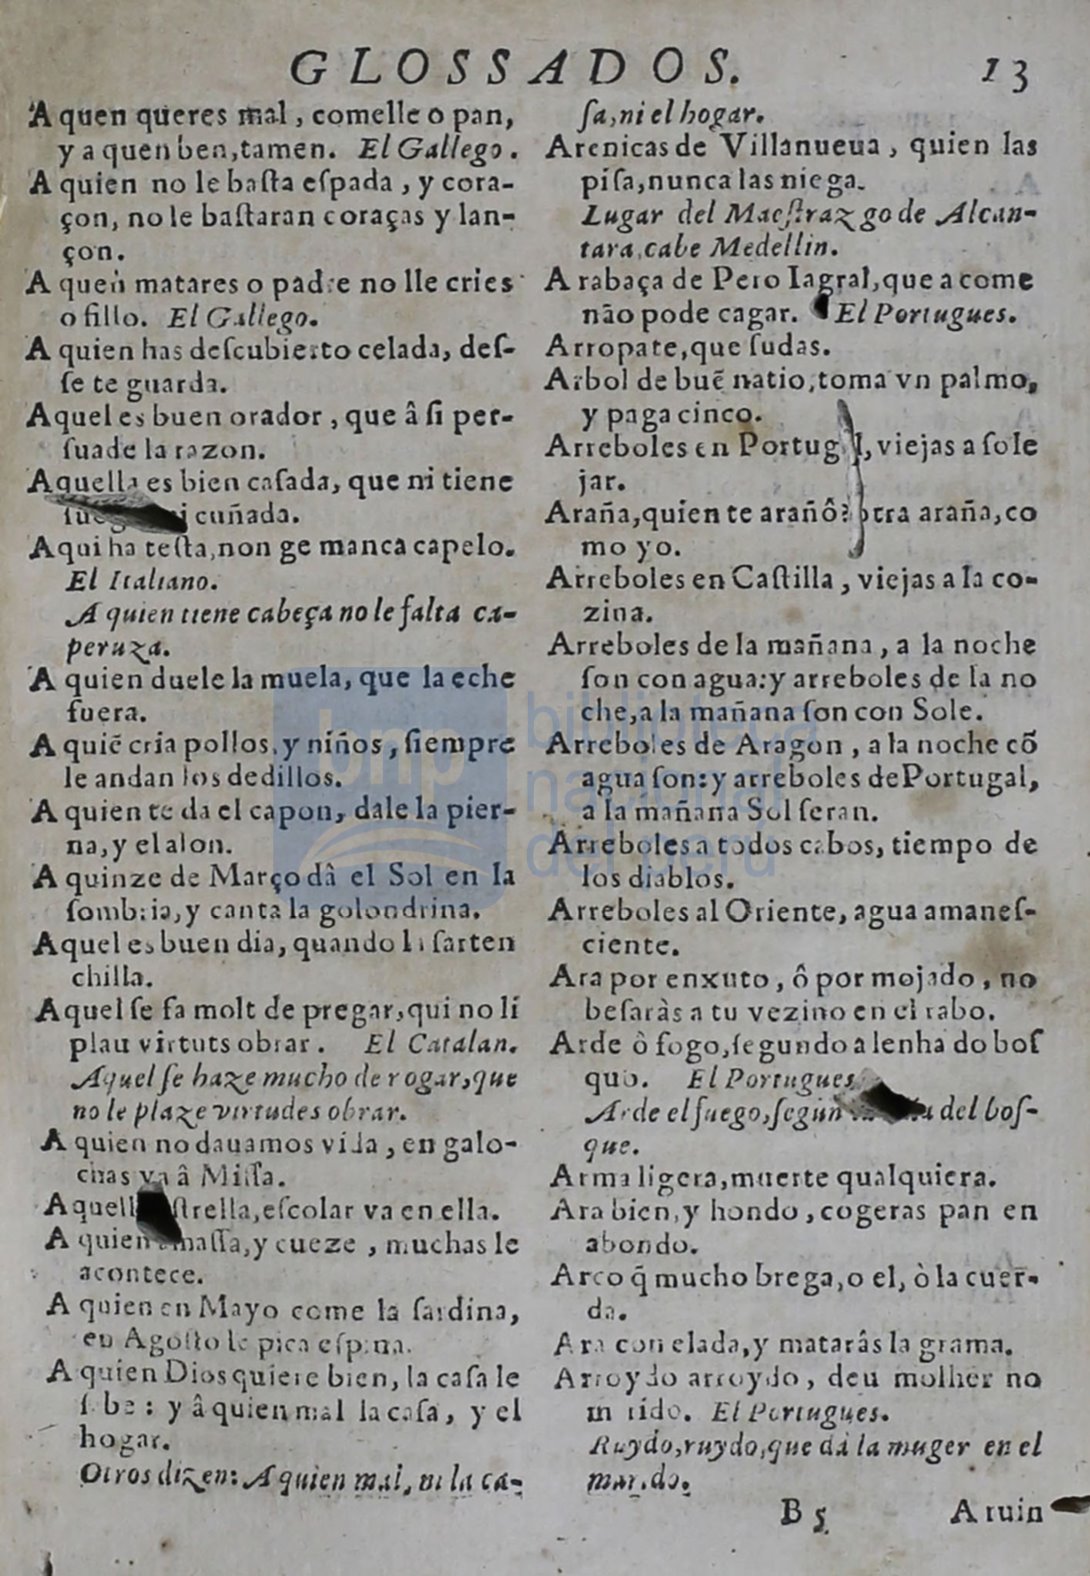 GLOSSADOS. 13
A quen queres mal, comelle o pan,
y a quen ben, tamen. El Gallego.
A quien no le baſta eſpada, y cora-
çon, no le baſtaran coraças y lan-
çon.
A quen matares o padre no lle cries
o fillo. El Gallego.
A quien has deſcubierto celada, deſ-
ſe te guarda.
Aquel es buen orador, que â ſi per-
ſuade la razon.
Aquella es bien caſada, que ni tiene
cuñada.
Aqui ha teſta, non ge manca capelo.
El Italiano.
A quien tiene cabeça no le falta ca-
peruza.
A quien duele la muela, que la eche
fuera.
A quiē cria pollos, y niños, ſiempre
le andan los dedillos.
A quien te da el capon, dale la pier-
na, y el alon.
A quinze de Março dâ el Sol en la
ſombria, y canta la golondrina.
Aquel es buen dia, quando la ſarten
chilla.
Aquel ſe fa molt de pregar, qui no li
plau virtuts obrar. El Catalan.
Aquel ſe haze mucho de rogar, que
no le plaze virtudes obrar.
A quien no dauamos vida, en galo-
chas va â Miſſa.
ſtrella, eſcolar va en ella.
A quien amaſſa, y cueze, muchas le
acontece.
A quien en Mayo come la ſardina,
en Agoſto le pica eſpina.
A quien Dios quiere bien, la caſa le
ſabe: y â quien mal la caſa, y el
hogar.
Otros dizen: A quien mal, ni la ca-
ſa, ni el hogar.
Arenicas de Villanueua, quien las
piſa, nunca las niega.
Lugar del Maeſtrazgo de Alcan-
tara, cabe Medellin.
A rabaça de Pero Iagral, que a come
não pode cagar. El Portugues.
Arropate, que ſudas.
Arbol de buē natio, toma vn palmo,
y paga cinco.
Arreboles en Portugal, viejas a ſole
jar.
Araña, quien te arañô? otra araña, co
mo yo.
Arreboles en Caſtilla, viejas a la co-
zina.
Arreboles de la mañana, a la noche
ſon con agua: y arreboles de la no
che, a la mañana ſon con Sole.
Arreboles de Aragon, a la noche cō
agua ſon: y arreboles de Portugal,
a la mañana Sol ſeran.
Arreboles a todos cabos, tiempo de
los diablos.
Arreboles al Oriente, agua amaneſ-
ciente.
Ara por enxuto, ô por mojado, no
beſaràs a tu vezino en el rabo.
Arde ò fogo, ſegundo a lenha do boſ
quo. El Portugues
Arde el fuego, ſegun del boſ-
que.
Arma ligera, muerte qualquiera.
Ara bien, y hondo, cogeras pan en
abondo.
Arco q̄ mucho brega, o el, ò la cuer-
da.
Ara con elada, y matarâs la grama.
Arroydo arroydo, deu molher no
m rido. El Portugues.
Ruydo, ruydo, que dà la muger en el
marido.
B 5 A ruin
bnp biblioteca nacional del perú